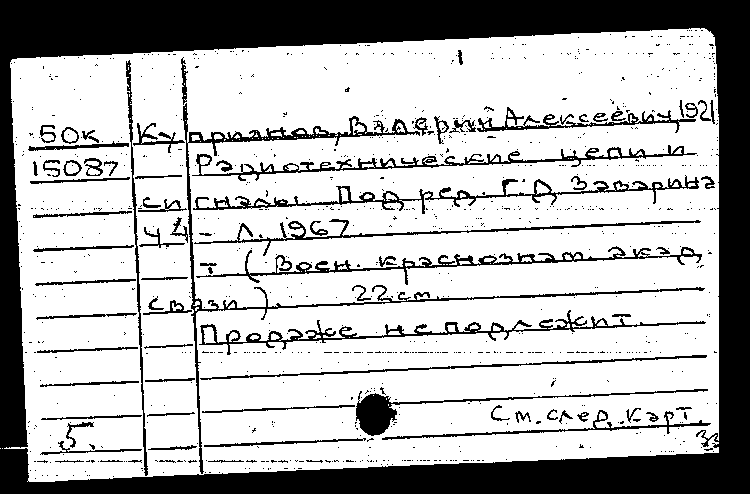 50к Куприянов, Валерий Алексеевич, 1921
15087 Радиотехнические цепи и
сигналы. Под ред. Г.Д. Заварина
ч.4 - Л., 1967
т (Воен. краснознам. акад.
связи). 22 см.
Продаже не подлежит.
См. след. карт.
5.